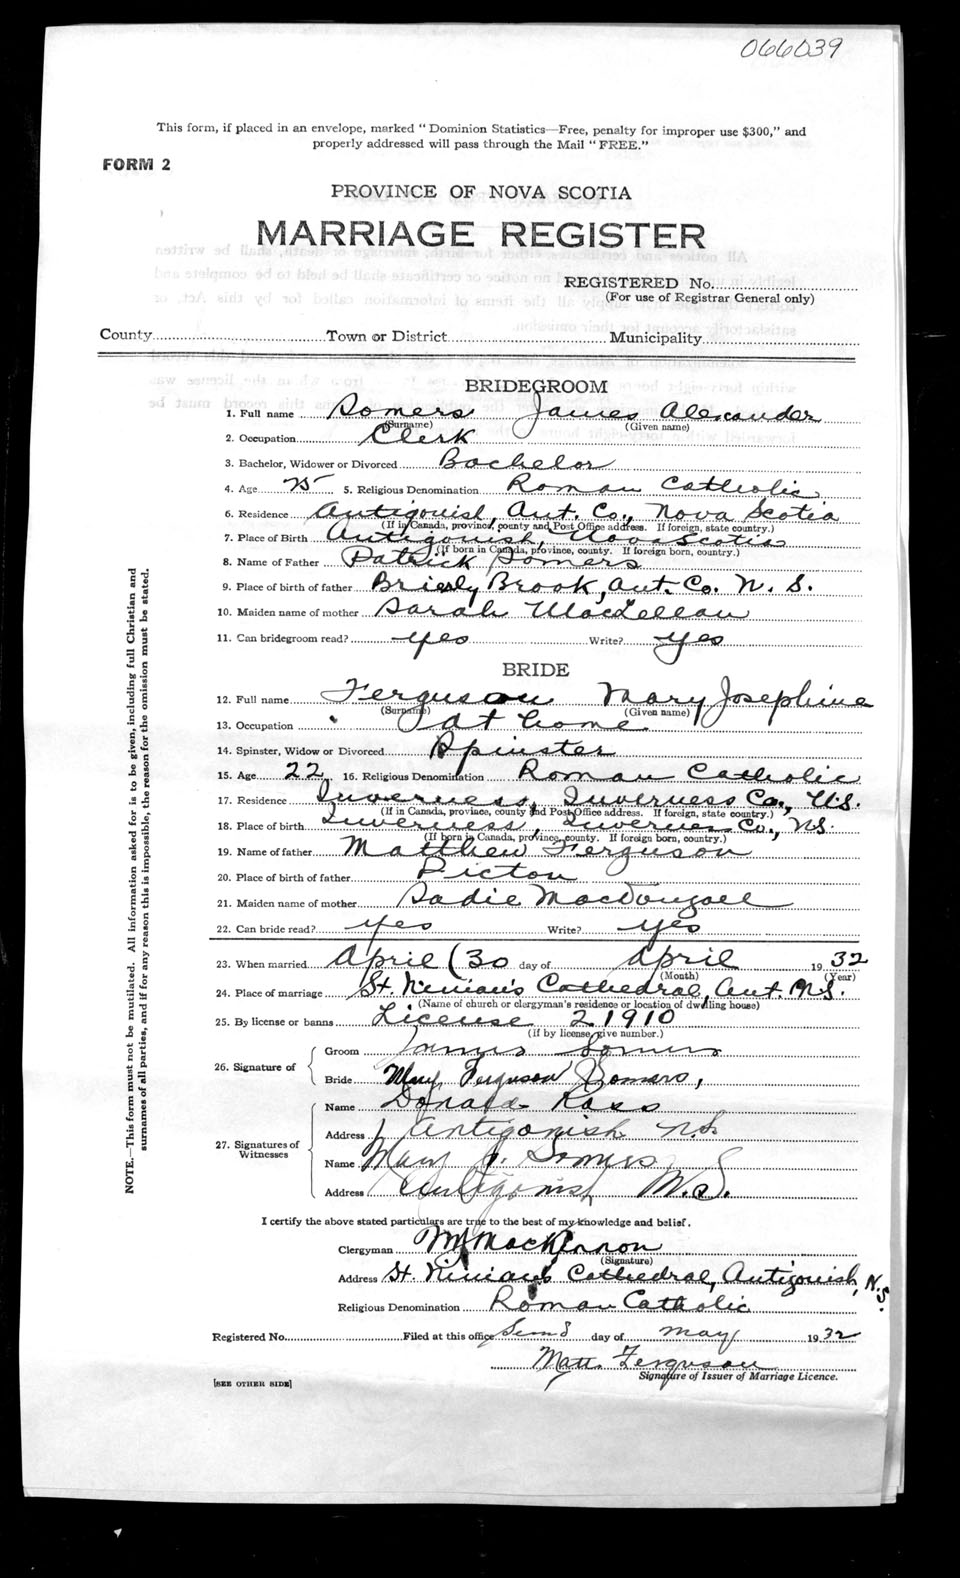 066039
This form, if placed in an envelope, marked “ Dominion Statistics—Free, penalty for improper use $300,” and
properly addressed will pass through the Mail “ FREE.”
FORM 2
PROVINCE OF NOVA SCOTIA
MARRIAGE REGISTER
REGISTERED No.
(For use of Registrar General only)
County Town or District Municipality
BRIDEGROOM
1. Full name Somers James Alexander
(Surname) (Given name)
2. Occupation Clerk
3. Bachelor, Widower or Divorced Bachelor
4. Age 25 5. Religious Denomination Roman Catholic
6. Residence Antigonish, Ant. Co., Nova Scotia
(If in Canada, province, county and Post Office address. If foreign, state country.)
7. Place of Birth Antigonish, Nova Scotia
(If born in Canada, province, county. If foreign born, country.)
8. Name of Father Patrick Somers
9. Place of birth of father Brierly Brook, Ant. Co. N. S.
10. Maiden name of mother Sarah MacLellan
11. Can bridegroom read? yes Write? yes
BRIDE
12. Full name Ferguson Mary Josephine
(Surname) (Given name)
13. Occupation at home
14. Spinster, Widow or Divorced Spinster
15. Age 22 16. Religious Denomination Roman Catholic
17. Residence Inverness, Inverness Co., N.S.
(If in Canada, province, county and Post Office address. If foreign, state country.)
18. Place of birth Inverness, Inverness Co., NS.
(If born in Canada, province, county. If foreign born, country.)
19. Name of father Matthew Ferguson
20. Place of birth of father Pictou
21. Maiden name of mother Sadie MacDougall
22. Can bride read? yes Write? yes
23. When married April (30 day of April 1932
(Month) (Year)
24. Place of marriage St. Ninian's Cathedral, Ant. N.S.
(Name of church or clergyman's residence or location of dwelling house)
25. By license or banns License 21910
(If by license, give number.)
26. Signature of
Groom James Somers
Bride Mary Ferguson Somers,
27. Signatures of Witnesses
Name Donald Ross
Address Antigonish N.S
Name Mary J. Somers
Address Antigonish N.S.
I certify the above stated particulars are true to the best of my knowledge and belief.
Clergyman M MacKinnon
(Signature)
Address St. Ninians Cathedral, Antigonish, N.S.
Religious Denomination Roman Catholic
Registered No. Filed at this office day of may 1932
Matt. Ferguson
Signature of Issuer of Marriage Licence.
[SEE OTHER SIDE]
NOTE.—This form must not be mutilated. All information asked for is to be given, including full Christian and
surnames of all parties, and if for any reason this is impossible, the reason for the omission must be stated.